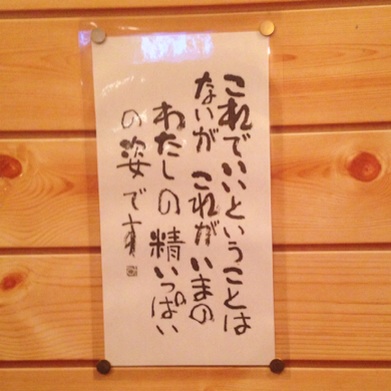 これでいいということは
ないが これがいまの
わたしの精いっぱい
の姿です